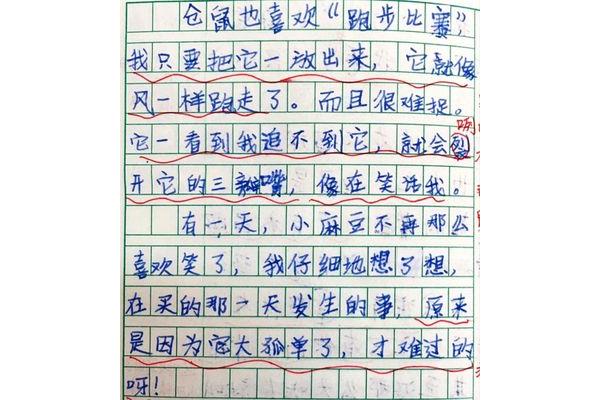 仓鼠也喜欢“跑步比赛”，
我只要把它一放出来，它就像
风一样跑走了。而且很难捉。
它一看到我追不到它，就会裂
咧
开它的三瓣嘴，像在笑话我。
有一天，小麻豆不再那么
喜欢笑了，我仔细地想了想，
在买的那一天发生的事，原来
是因为它太孤单了，才难过的
呀！